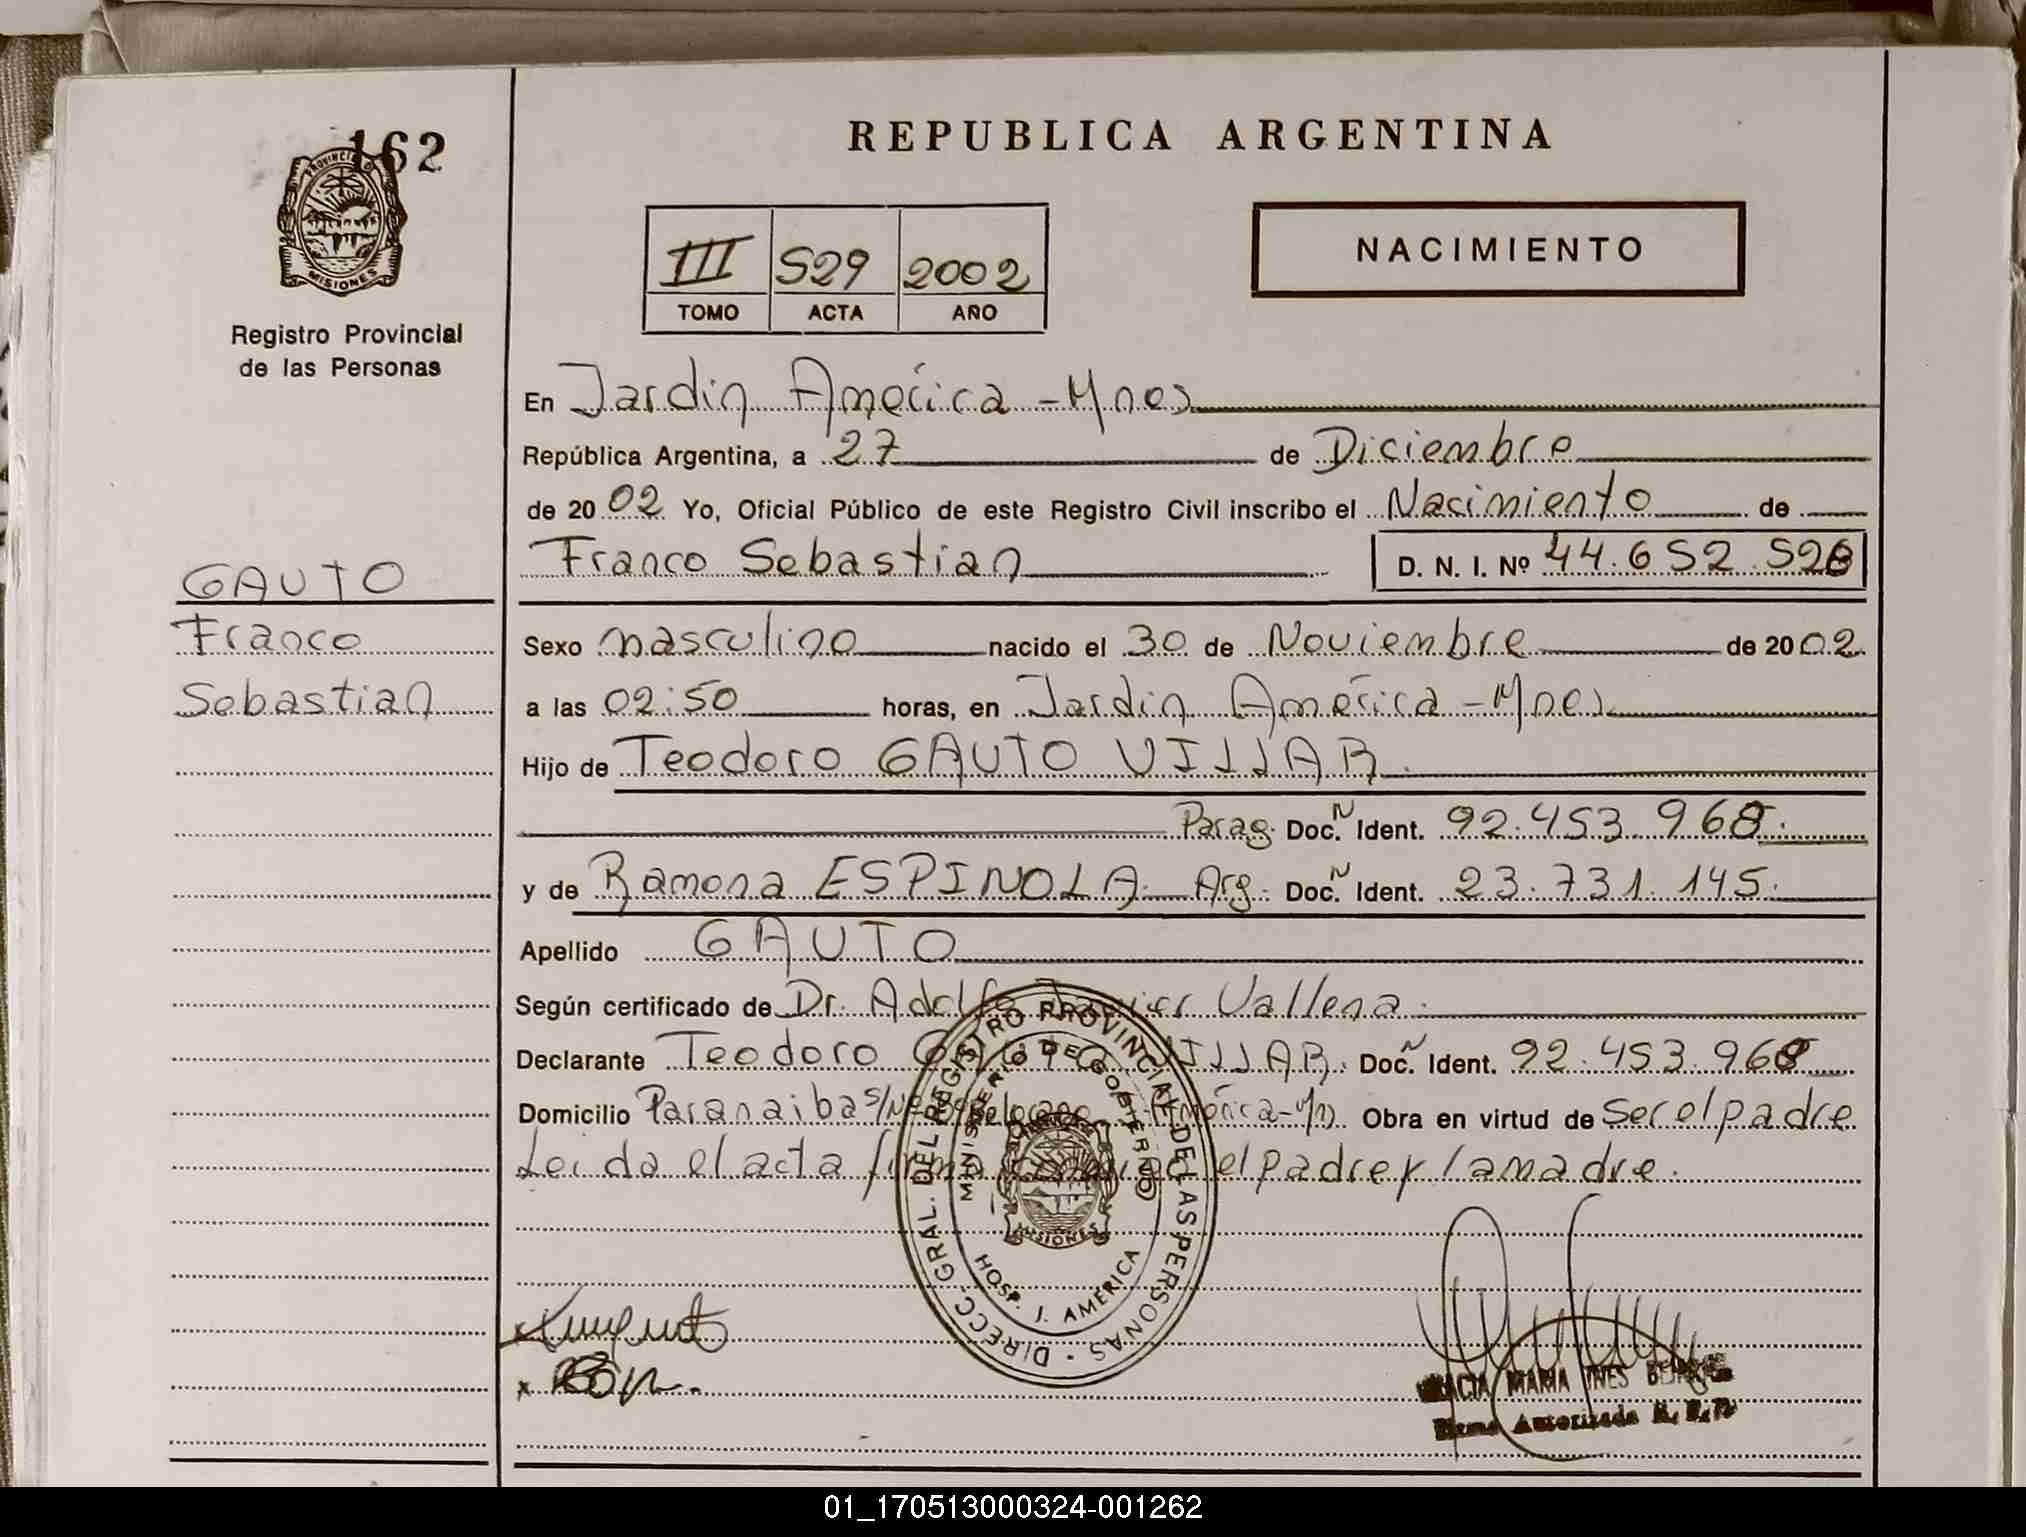 162
PROVINCIA DE
MISIONES
Registro Provincial
de las Personas
REPUBLICA ARGENTINA
III 529 2002
TOMO ACTA AÑO
NACIMIENTO
En Jardin América - Mnes
República Argentina, a 27 de Diciembre
de 2002 Yo, Oficial Público de este Registro Civil inscribo el Nacimiento de
Franco Sebastian D. N. I. Nº 44.652.528
GAUTO
Franco
Sebastian
Sexo masculino nacido el 30 de Noviembre de 2002
a las 02:50 horas, en Jardin América - Mnes
Hijo de Teodoro GAUTO VILLAR
Parag. Doc. N Ident. 92.453.968.
y de Ramona ESPINOLA. Arg. Doc. N Ident. 23.731.145.
Apellido GAUTO
Según certificado de Dr. Adolfo Javier Vallena.
Declarante Teodoro GAUTO VILLAR. Doc. N Ident. 92.453.968
Domicilio Paranaiba s/Nº América - Obra en virtud de Ser el padre
Leida el acta firma conmigo el padre y la madre.
DIRECC. GRAL. DEL REGISTRO PROVINCIAL DE LAS PERSONAS
MINISTERIO DE GOBIERNO
MISIONES
HOSP. J. AMERICA
MARIA INES
Firma Autorizada R. P. P.
01_170513000324-001262